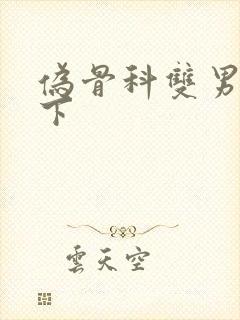 偽骨科雙男
下
雲天空